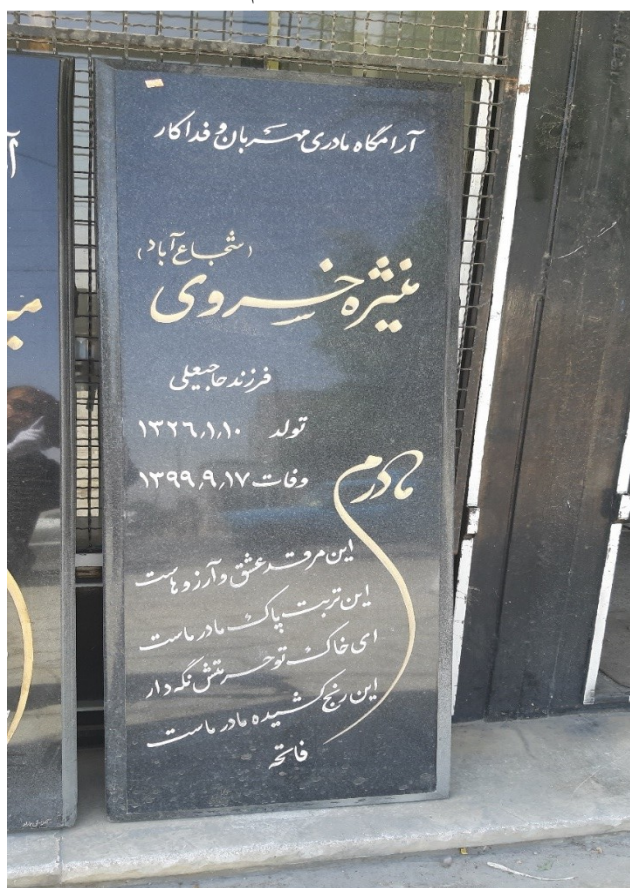 آرامگاه مادری مهربان و فداکار
(شجاع آباد)
منیژه خسروی
فرزند حاجیعلی
تولد ۱۳۲۶٫۱٫۱۰
وفات ۱۳۹۹٫۹٫۱۷
مادرم
این مرقد عشق و آرزوهاست
این تربت پاک مادر ماست
ای خاک تو حرمتش نگه دار
این رنج کشیده مادر ماست
فاتحه